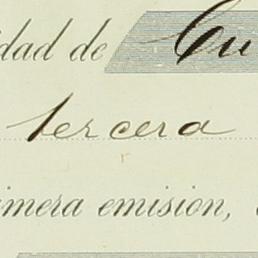 idad de Cu
tercera
rimera emisión,